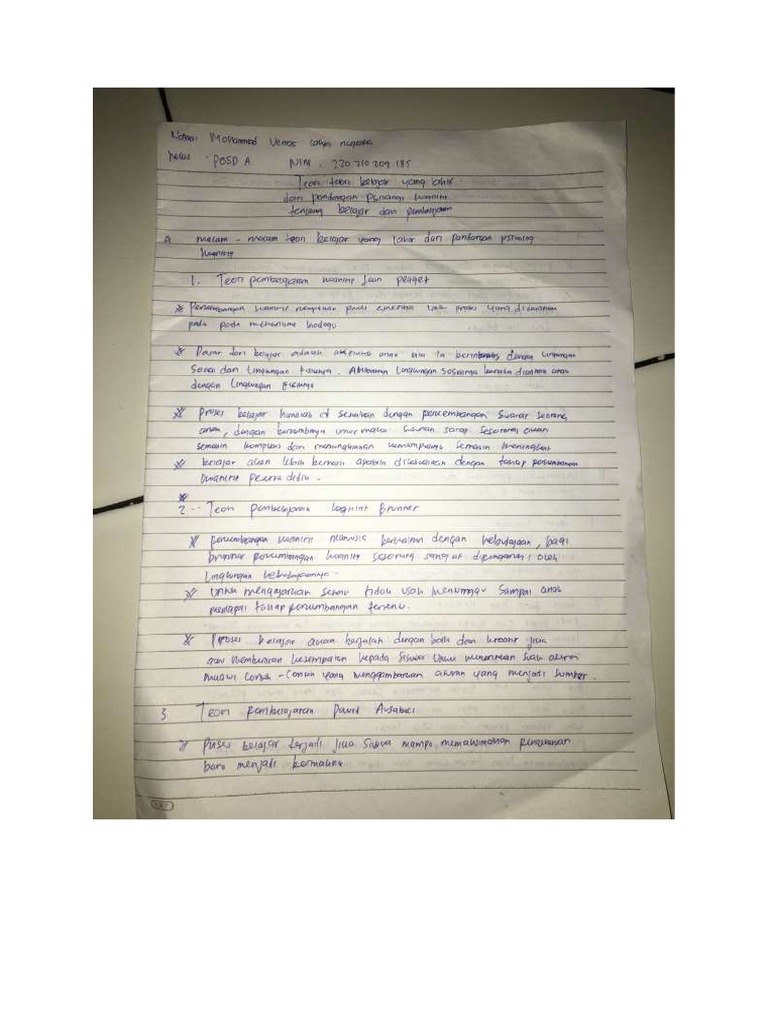 Nama: Mohammad
Kelas : PGSD A NIM . 220.210.209.185
Teori teori belajar yang lahir
dari pandangan psikologi kognitif
tentang belajar dan pembelajaran
a macam - macam teori belajar yang lahir dari pandangan psikolog
kognitif
1. Teori pembelajaran kognitif Jean peaget
* Perkembangan kognitif merupakan proses genetika yaitu proses yang didasarkan
pada pada mekanisme biologi
* Dasar dari belajar adalah aktivitas anak bila ia berinteraksi dengan lingkungan
Sosial dan lingkungan fisiknya. lingkungan sosialnya berada diantara anak
dengan lingkungan fisiknya
* Proses belajar harus di sesuaikan dengan perkembangan syaraf seorang
anak, dengan bertambahnya umur maka susunan sarap seseorang akan
semakin kompleks dan memungkinkan kemampuanya semakin meningkat
* belajar akan lebih berhasil apabila disesuaikan dengan tahap perkembangan
kognitif peserta didik .
*
2 -- Teori pembelajaran kognitif Brunner
* perkembangan kognitif manusia berkaitan dengan kebudayaan, bagi
brunner perkembangan kognitif seseorang sangat dipengaruhi oleh
lingkungan kebudayaannya -
* Untuk mengajarkan sesuatu tidak usah menunggu sampai anak
mencapai tahap perkembangan tertentu.
* Proses belajar akan berjalan dengan baik dan kreatif jika
guru memberikan kesempatan kepada siswa untuk menemukan suatu aturan
melalui contoh - contoh yang menggambarkan aturan yang menjadi sumber .
3 Teori pembelajaran David Ausubel
* Proses belajar terjadi jika siswa mampu memaksimalkan pengetahuan
baru menjadi bermakna